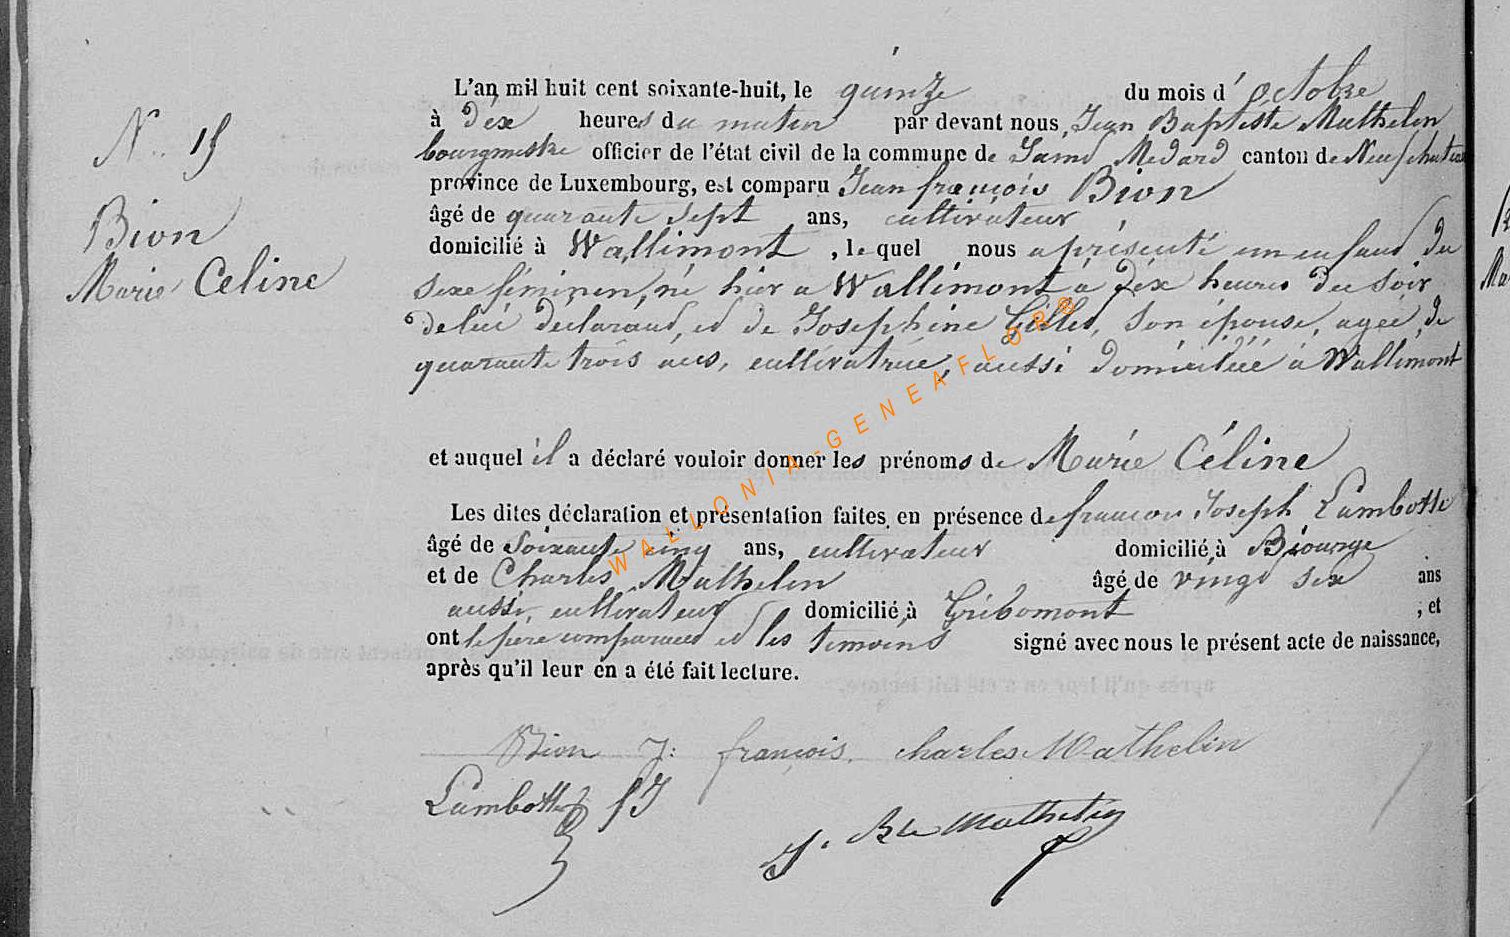 N° 15
Bion
Marie Celine
L'an mil huit cent soixante-huit, le quinze du mois d'octobre
à dix heures du matin par devant nous, Jean Baptiste Mathelin
bourgmestre officier de l'état civil de la commune de Saint Medard canton de Neufchateau
province de Luxembourg, est comparu Jean françois Bion
âgé de quarante sept ans, cultivateur
domicilié à Wallimont, le quel nous a présenté un enfant du
sexe féminin, né hier a Wallimont à dix heures du soir
de lui déclarant, et de Josephine Gilles, son épouse, agée de
quarante trois ans, cultivatrice, aussi domiciliée à Wallimont
et auquel il a déclaré vouloir donner les prénoms de Marie Céline
Les dites déclaration et présentation faites en présence de françois Joseph Lambotte
âgé de soixante cinq ans, cultivateur domicilié à Biourge
et de Charles Mathelin âgé de vingt six ans
aussi cultivateur domicilié à Gribomont ; et
ont le père comparant et les temoins signé avec nous le présent acte de naissance,
après qu'il leur en a été fait lecture.
Bion J: françois. charles Mathelin
Lambotte fJ
J. Bte Mathelin
WALLONIA-GENEAFLOR®